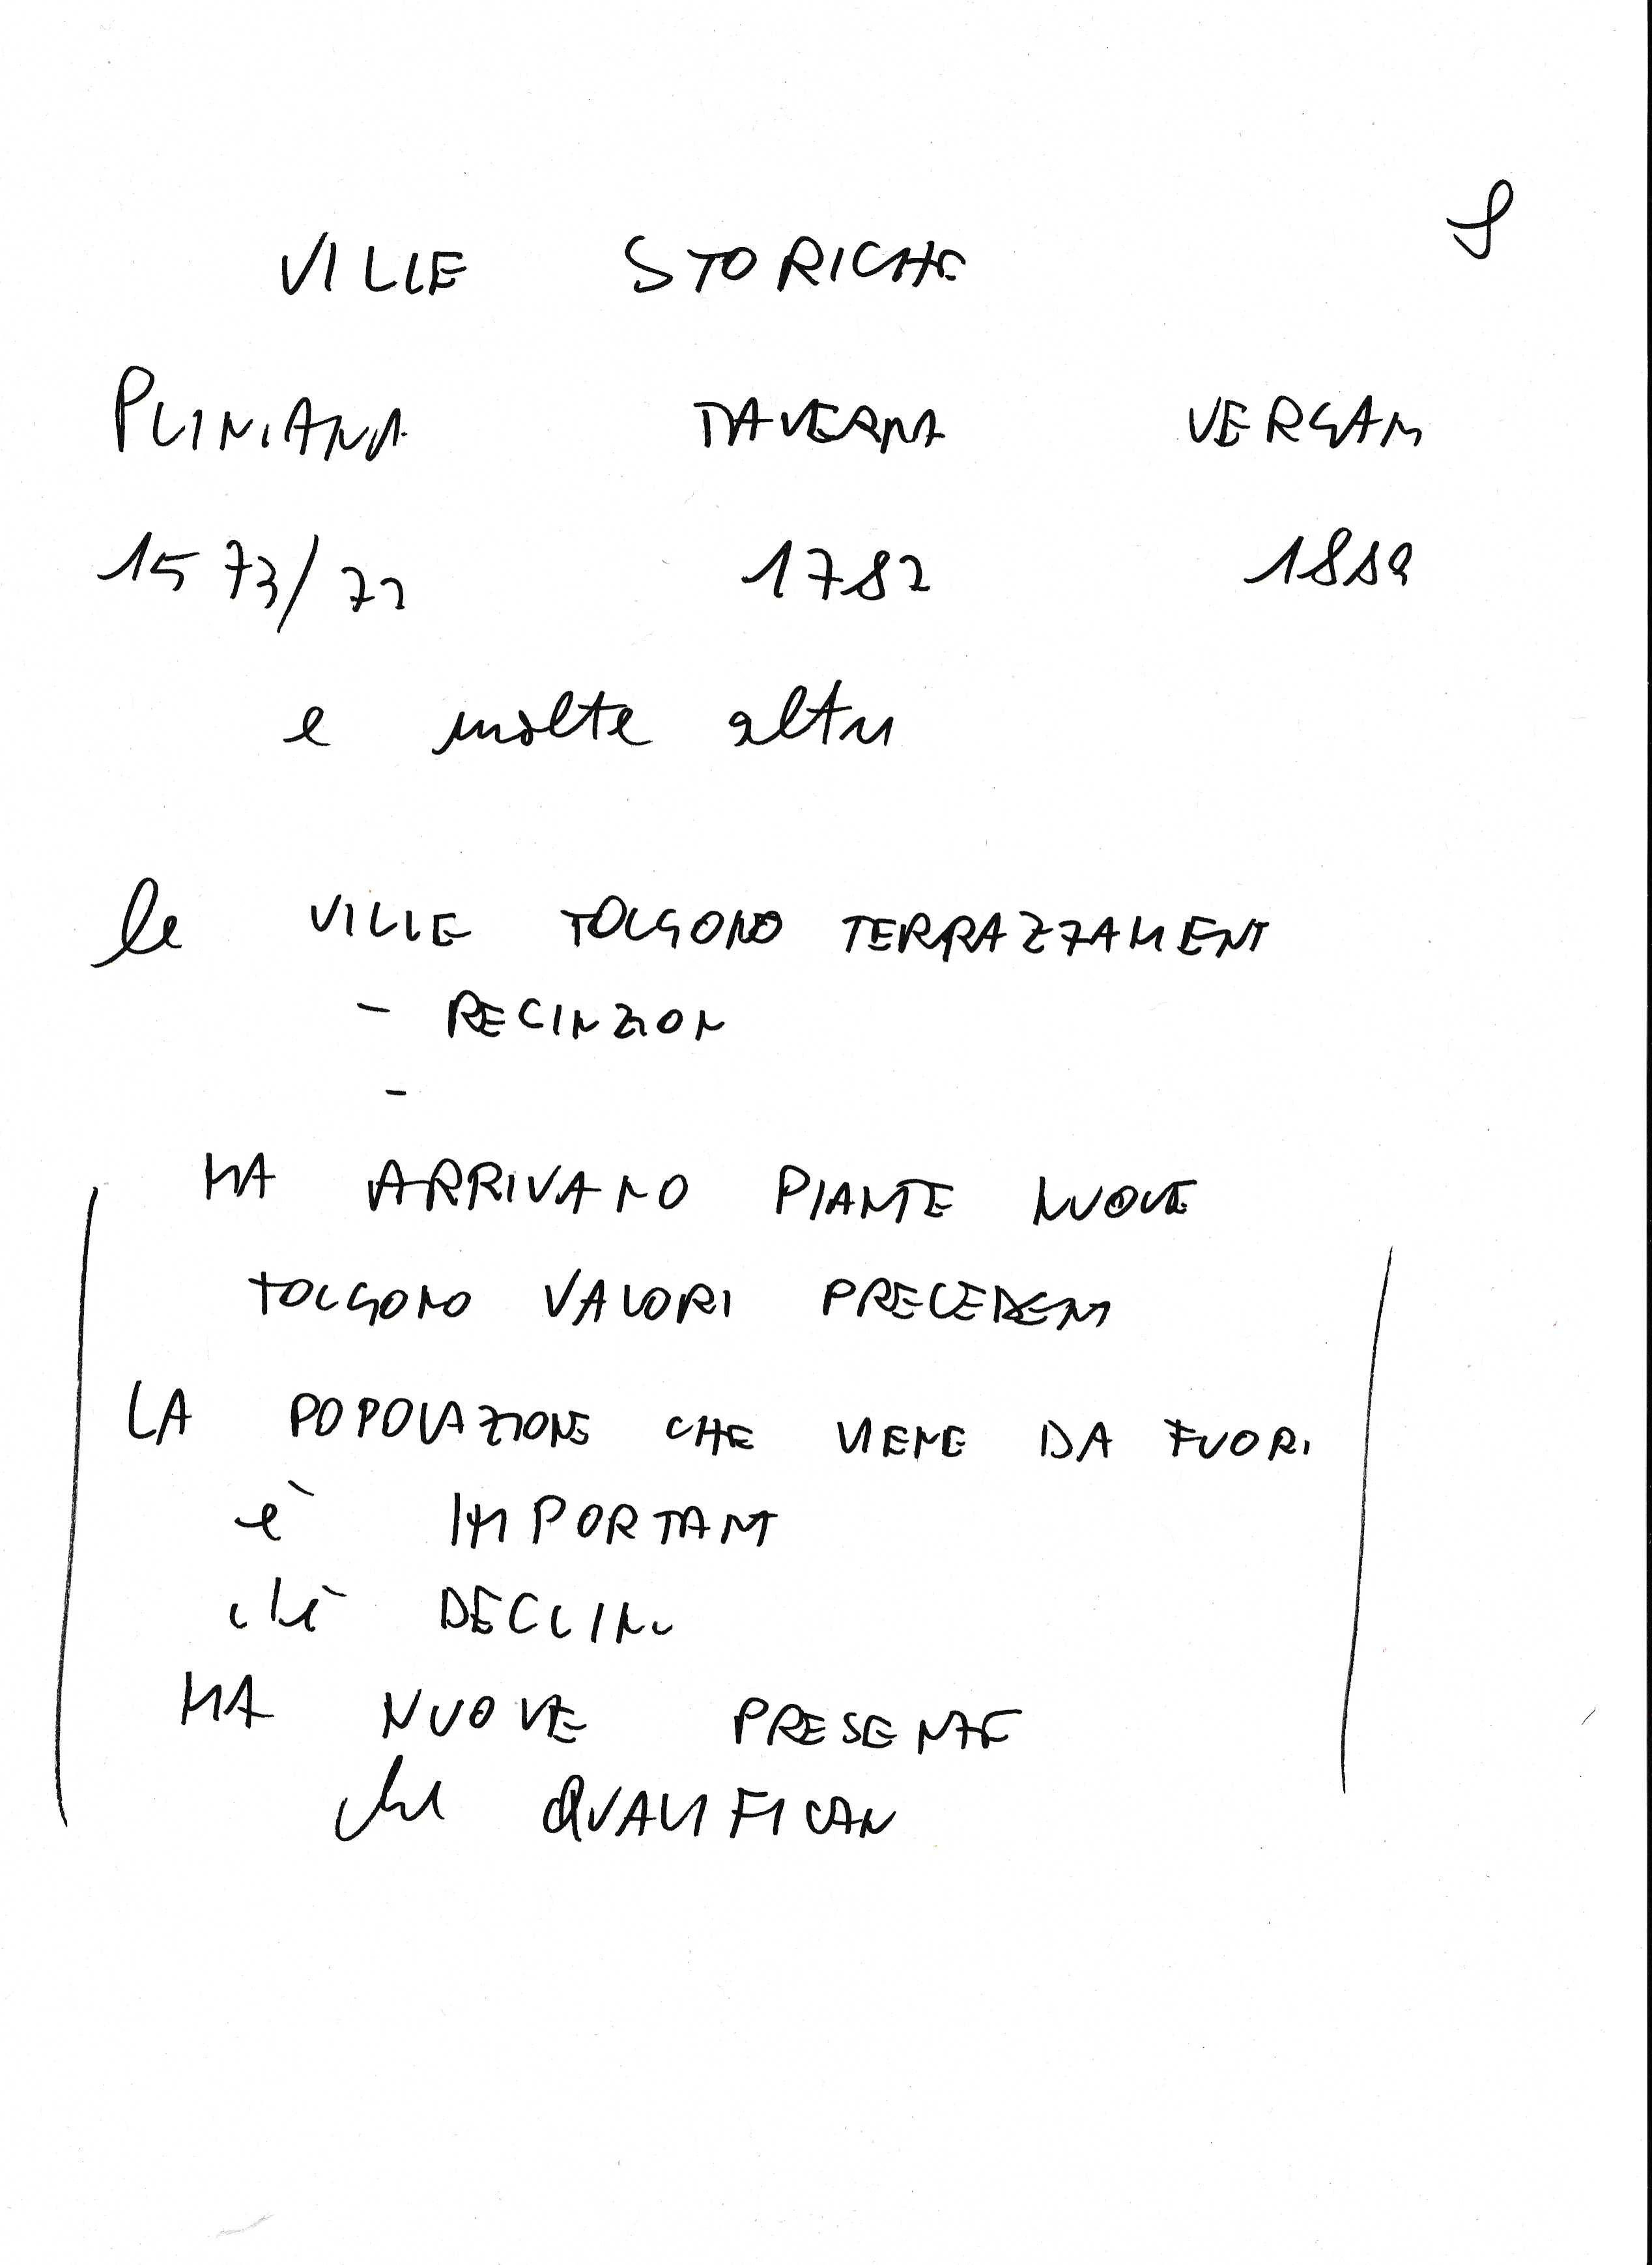 8
VILLE STORICHE
PLINIANA TAVERNA VERGANI
1573/77 1782 1889
e molte altre
le VILLE TOLGONO TERRAZZAMENTI
- RECINZIONI
-
MA ARRIVANO PIANTE NUOVE
TOLGONO VALORI PRECEDENTI
LA POPOLAZIONE CHE VIENE DA FUORI
è IMPORTANTE
DECLINO
MA NUOVE PRESENZE
che QUALIFICANO